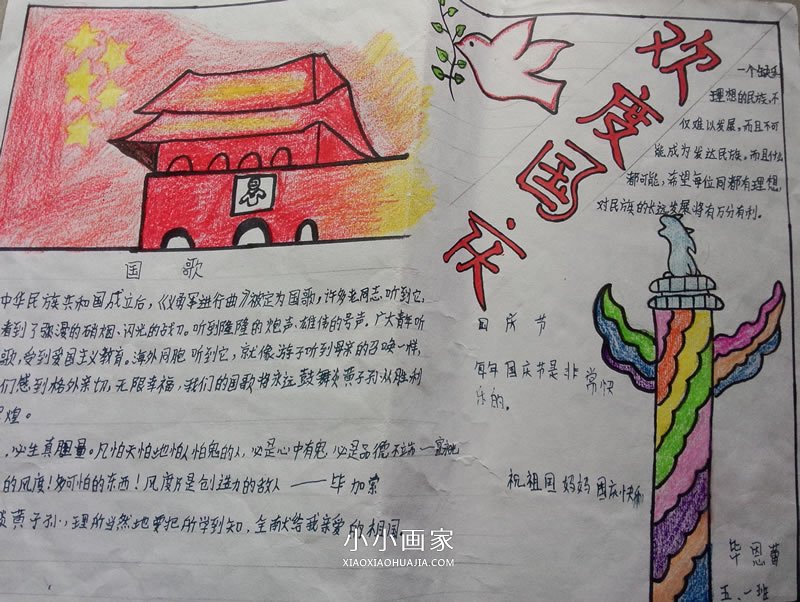 欢度国庆
一个缺乏
理想的民族,不
仅难以发展,而且不可
能成为发达民族,而且什么
都可能,希望每位同都有理想,
对民族的长远发展将有万分有利。
国 歌
中华民族共和国成立后,《义勇军进行曲》被定为国歌,许多老同志,听到它,
看到了弥漫的硝烟、闪光的战刀。听到隆隆的炮声、雄伟的号声。广大青年听
歌,受到爱国主义教育。海外同胞听到它,就像游子听到母亲的召唤一样,
们感到格外亲切,无限幸福,我们的国歌将永远鼓舞炎黄子孙从胜利
煌。
,必生真胆量。凡怕天怕地怕人怕鬼的人,必是心中有鬼,必是品德不端
的风度!多可怕的东西!风度乃是创造力的敌人 ——毕加索
黄子孙,理所当然地要把所学到知,全献给我亲爱的祖国。
国 庆 节
每年国庆节是非常快
乐的。
祝祖国妈妈国庆快乐
毕恩蕾
五、一班
小小画家
XIAOXIAOHUAJIA.COM